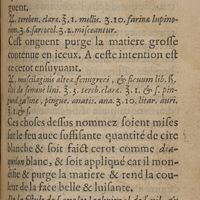 guent.
℞. tereben. clara. ℥. 1. mellis. ℥. 10. farinæ lupino-
rum. ℥. 6. sarcocol. ℥. 2. misceantur.
Cest onguent purge la matiere grosse
contenue en iceux. A ceste intention est
ce cerot ensuyuant.
℞. muscilaginis alteæ, fenugreci, & ficuum lib. ß.
lini de semine ℥. 3. cereb. clara. ℥. & ß. pin-
gued. gallinæ, pinguæ. anatis. ana. ℥. 10. litar. auri.
℥. 1. & ß.
Ces choses dessus nommez soient mises
sur le feu auec soffisante quantité de cire
blanche & soit faict cerot comme dia-
quilon blanc, & soit appliqué car il mon-
difie & purge la matiere & rend la cou-
leur de la face belle & luisante.